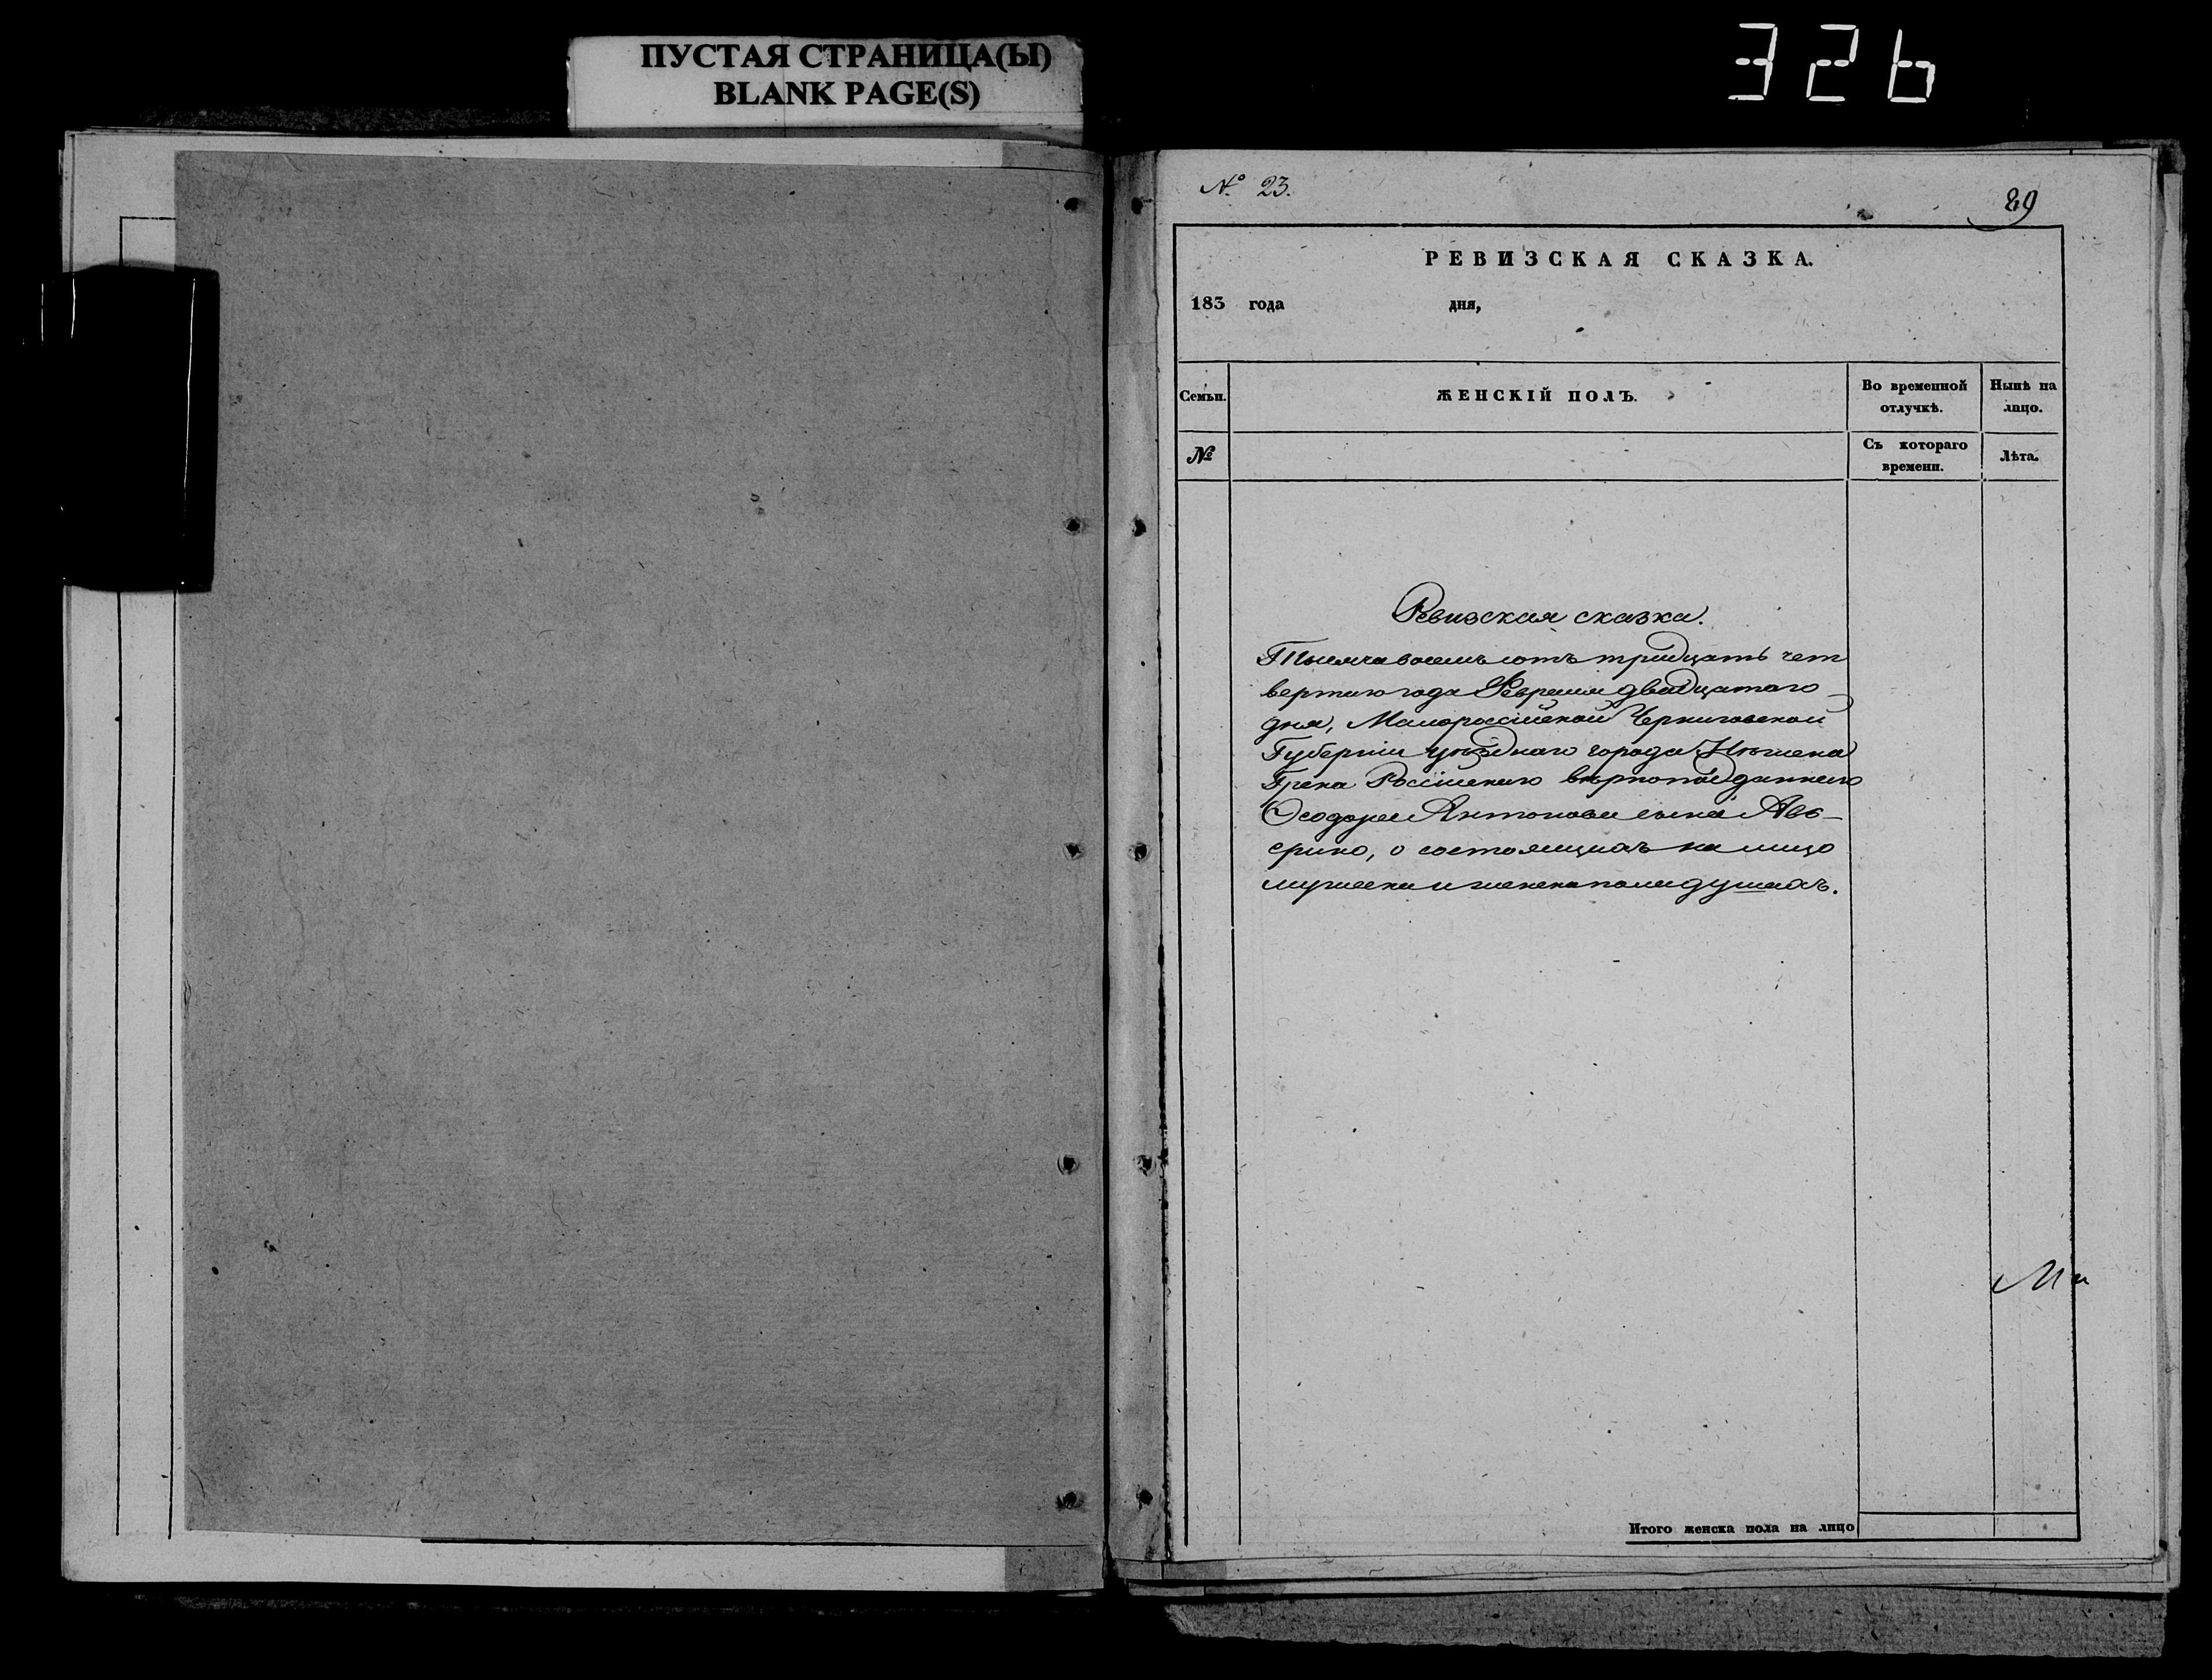 ПУСТАЯ СТРАНИЦА(Ы)
BLANK PAGE(S)
326
№ 23.
89
РЕВИЗСКАЯ СКАЗКА.
183 года дня,
Семьи. ЖЕНСКІЙ ПОЛЪ. Во временной отлучкѣ. Нынѣ на лицо.
№ Съ котораго времени. Лѣта.
Ревизская сказка.
Тысяча восемь сотъ тридцать чет
вертаго года Февраля двадцатаго
дня, Малороссійской Черниговской
Губерніи уѣзднаго города Нѣжина
Грека Россійскаго вѣрноподданнаго
Ѳеодора Антонова сына Авъ-
ерино, о состоящихъ на лицо
мужеска и женска пола душахъ.
Итого женска пола на лицо